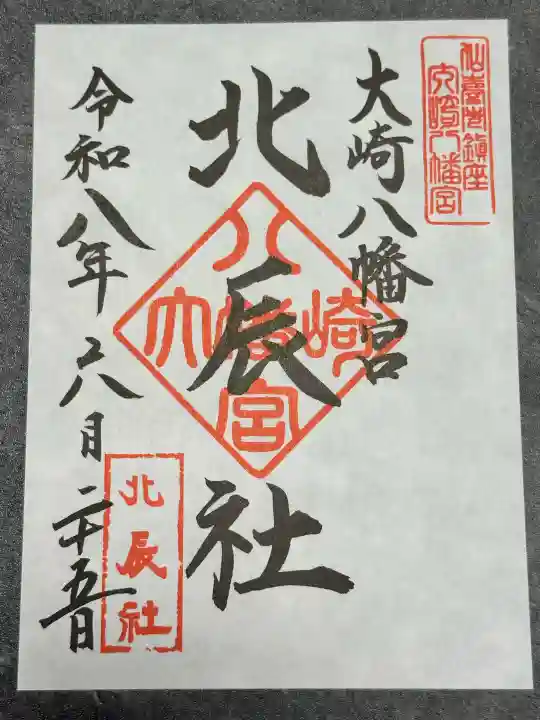 仙臺巷鎮座
大崎八幡宮
大崎八幡宮
北辰社
八
大 幡 崎
宮
令和八年六月二十五日
北辰社